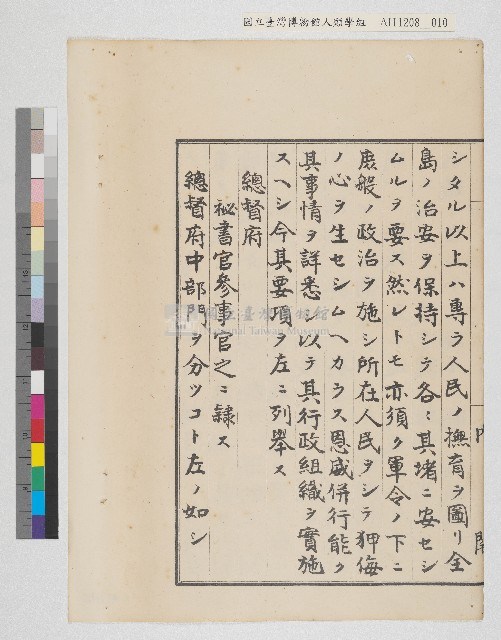 國立臺灣博物館人類學組 AH1208 010
シタル以上ハ專ラ人民ノ撫育ヲ圖リ全
島ノ治安ヲ保持シテ各〻其堵ニ安セシ
ムルヲ要ス然レトモ亦須ク軍令ノ下ニ
庶般ノ政治ヲ施シ所在人民ヲシテ狎侮
ノ心ヲ生セシムヘカラス恩威併行能ク
其事情ヲ詳悉シ以テ其行政組織ヲ實施
スヘシ今其要項ヲ左ニ列舉ス
總督府
祕書官參事官之ニ隸ス
總督府中部門ヲ分ツコト左ノ如シ
國立臺灣博物館
National Taiwan Museum
內 閣